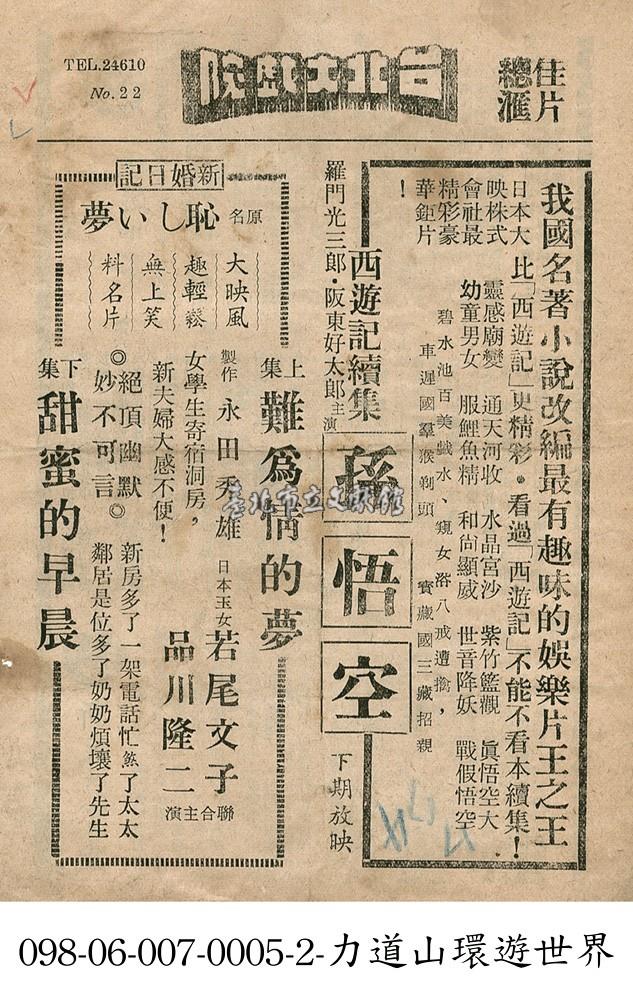 TEL.24610
No.22
台北大戲院
佳片
總滙
我國名著小說改編最有趣味的娛樂片王之王
日本大
映株式
會社最
精彩豪
華鉅片
！
比「西遊記」更精彩。看過「西遊記」不能不看本續集！
靈感廟變 通天河收 水晶宮沙 紫竹籃觀 眞悟空大
幼童男女 服鯉魚精 和尚顯威 世音降妖 戰假悟空
碧水池百美戲水、窺女浴八戒遭擒，
車遲國羣猴剃頭 寶藏國三藏招親
西遊記續集
孫悟空
下期放映
羅門光三郎·阪東好太郎主演
新婚日記
原名 恥しい夢
大映風
趣輕鬆
無上笑
料名片
上集 難爲情的夢
製作 永田秀雄
日本玉女 若尾文子
品川隆二
聯合主演
女學生寄宿洞房，
新夫婦大感不便！
◎絕頂幽默◎
妙不可言
新房多了一架電話忙煞了太太
鄰居是位多了奶奶煩壞了先生
下集 甜蜜的早晨
臺北市立文獻館
098-06-007-0005-2-力道山環遊世界